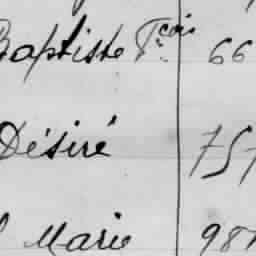 Baptiste Fcois 66
Désiré 757
Marie 981